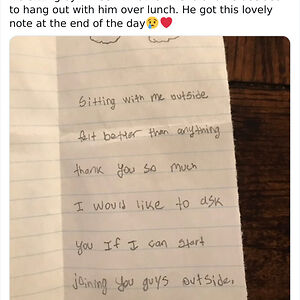 to hang out with him over lunch. He got this lovely
note at the end of the day😢❤️
Sitting with me outside
felt better than anything
thank you so much
I would like to ask
you If I can start
joining you guys outside.